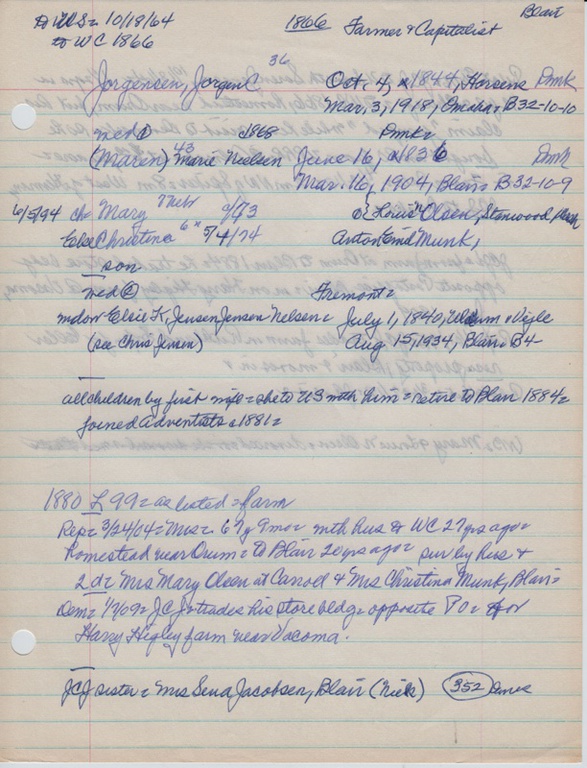 to US = 10/18/64 1866 Farmer & Capitalist Blair
to WC 1866
36
Jorgensen, Jorgen C Oct. 4, x 1844, Horsens Dmk
Mar, 3, 1918, Omaha = B32-10-10
wed ① c1868 Dmk =
(Maren) 43 Marie Nielsen June 16, c1836 Dmk
Mar. 16, 1904, Blair = B32-10-9
6/5/94 ch = Mary Nebr 9/73 Louis Olsen, Stanwood, Wash
Else Christina 6 x 5/4/74 Anton Emil Munk,
son
wed ② Fremont =
widow Elsie K. Jensen Jensen Nelsen = July 1, 1840, Vigle
(see Chris Jensen) Aug 15, 1934, Blair = B4-
all children by first wife = she to US with him = retire to Blair 1884 =
joined Adventists c1881 =
1880 L 99 = as listed = farm
Rep = 3/24/04 = Mrs = 67y 9mo = with hus to WC 27 yrs ago =
homestead near Orum = to Blair 20 yrs ago = sur by hus &
2 d = Mrs Mary Olsen at Carroll & Mrs Christina Munk, Blair =
Dem = 1/7/09 = JC Jo trades his store bldg = opposite PO = for
Harry Higley farm near Tacoma.
JCJ sister = Mrs Sena Jacobsen, Blair (Niels) 352